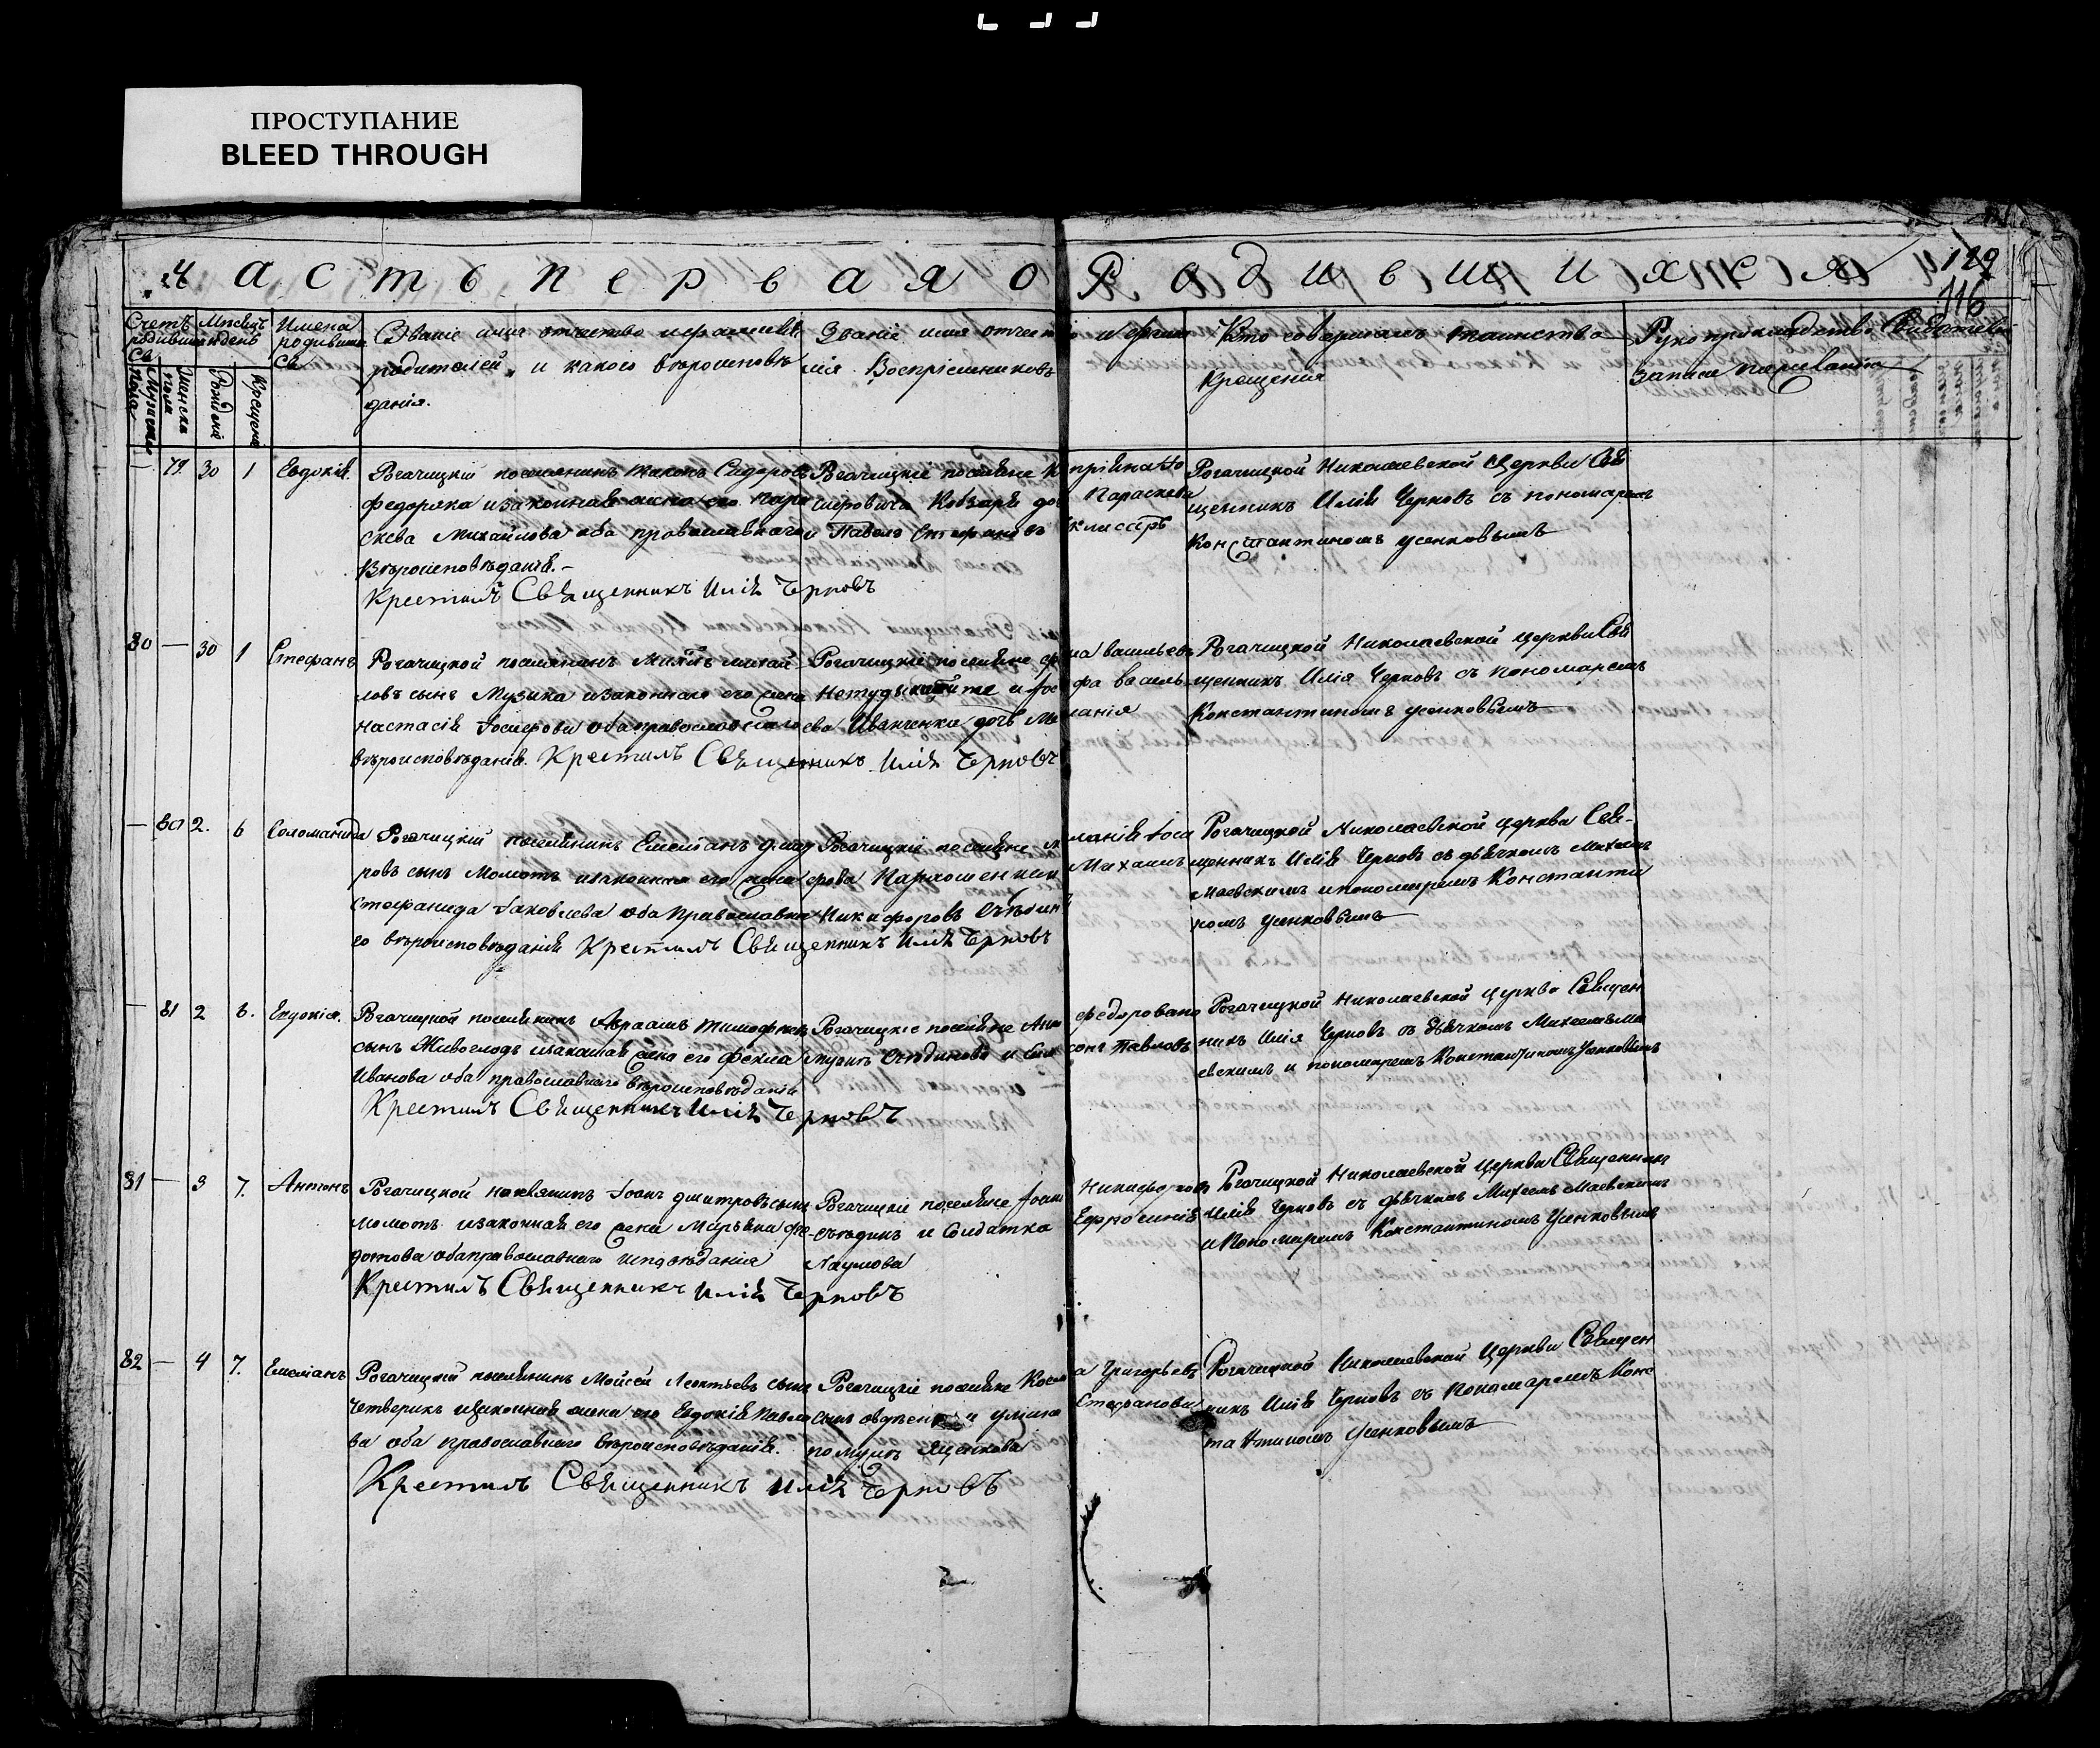 ПРОСТУПАНИЕ
BLEED THROUGH
Часть первая о Родившихся
129
116
Счетъ родившихся
Мужеска пола
Женска пола
Мѣсяцъ и день
Рожденія
Крещенія
Имена родившихся
Званіе имя отчество и фамилія
родителей, и какого вѣроисповѣ
данія.
Званіе имя отчество и фамилія
Воспріемниковъ
Кто совершалъ таинство
Крещенія
Рукоприкладство Свидѣтелей
записи
— 79 30 1 Евдокія
Рогачицкій поселянинъ Сидоровъ
Федоряка и законная жена его Пара
скева Михайлова оба православнаго
Вѣроисповѣданія.—
Крестилъ Священникъ Илія Черновъ
Рогачицкіе поселяне
Кобзаря Параскева
и Павелъ Стефановъ
Рогачицкой Николаевской Церкви Свя
щенникъ Илія Черновъ съ пономаремъ
Константиномъ Усенковымъ
80 — 30 1 Стефанъ
Рогачицкой поселянинъ Михай
ловъ сынъ Музика и законная его жена
Настасія Іосифова оба православнаго
вѣроисповѣданія. Крестилъ Священникъ Илія Черновъ
Рогачицкіе поселяне
Иванченка дочь Меланія
Рогачицкой Николаевской церкви Свя
щенникъ Илія Черновъ съ пономаремъ
Константиномъ Усенковымъ
— 80 2. 6 Соломанида
Рогачицкій поселянинъ Емельянъ Дмит
ровъ сынъ Момотъ и законная его жена
Стефанида Іаковлева оба Православна
го вѣроисповѣданія Крестилъ Священникъ Илія Черновъ
Рогачицкіе поселяне
Михаилъ
Никифоровъ
Рогачицкой Николаевской церкви Свя-
щенникъ Илія Черновъ съ дьячкомъ Михаиломъ
Маевскимъ и пономаремъ Константи
номъ Усенковымъ
— 81 2 6. Евдокія.
Рогачицкой поселянинъ Авраамъ Тимофеевъ
сынъ Живоглодъ и законная жена его Фекла
Иванова оба православнаго вѣроисповѣданія
Крестилъ Священникъ Илія Черновъ
Рогачицкіе поселяне
Федорована
Павловъ
Рогачицкой Николаевской церкви Священ
никъ Илія Черновъ съ дьячкомъ Михаиломъ Ма
евскимъ и пономаремъ Константиномъ Усенковымъ
81 — 3 7. Антонъ
Рогачицкой поселянинъ Іоанъ Дмитровъ сынъ
Момотъ и законная его жена Марьяна Фе
дотова оба православнаго исповѣданія
Крестилъ Священникъ Илія Черновъ
Рогачицкіе поселяне Іоанъ Никифоровъ
и Солдатка Ефросинія
Наумова
Рогачицкой Николаевской церкви Священникъ
Илія Черновъ съ дьячкомъ Михаиломъ Маевскимъ
и Пономаремъ Константиномъ Усенковымъ
82 — 4 7. Емеліанъ
Рогачицкій поселянинъ Мойсей Леонтьевъ сынъ
Четверикъ и законная жена его Евдокія Павло
ва оба православнаго вѣроисповѣданія.
Крестилъ Священникъ Илія Черновъ
Рогачицкіе поселяне Косма Григорьевъ
сынъ Стефанова
по мужѣ Яценкова
Рогачицкой Николаевской церкви Священ
никъ Илія Черновъ съ Пономаремъ Конс
тантиномъ Усенковымъ